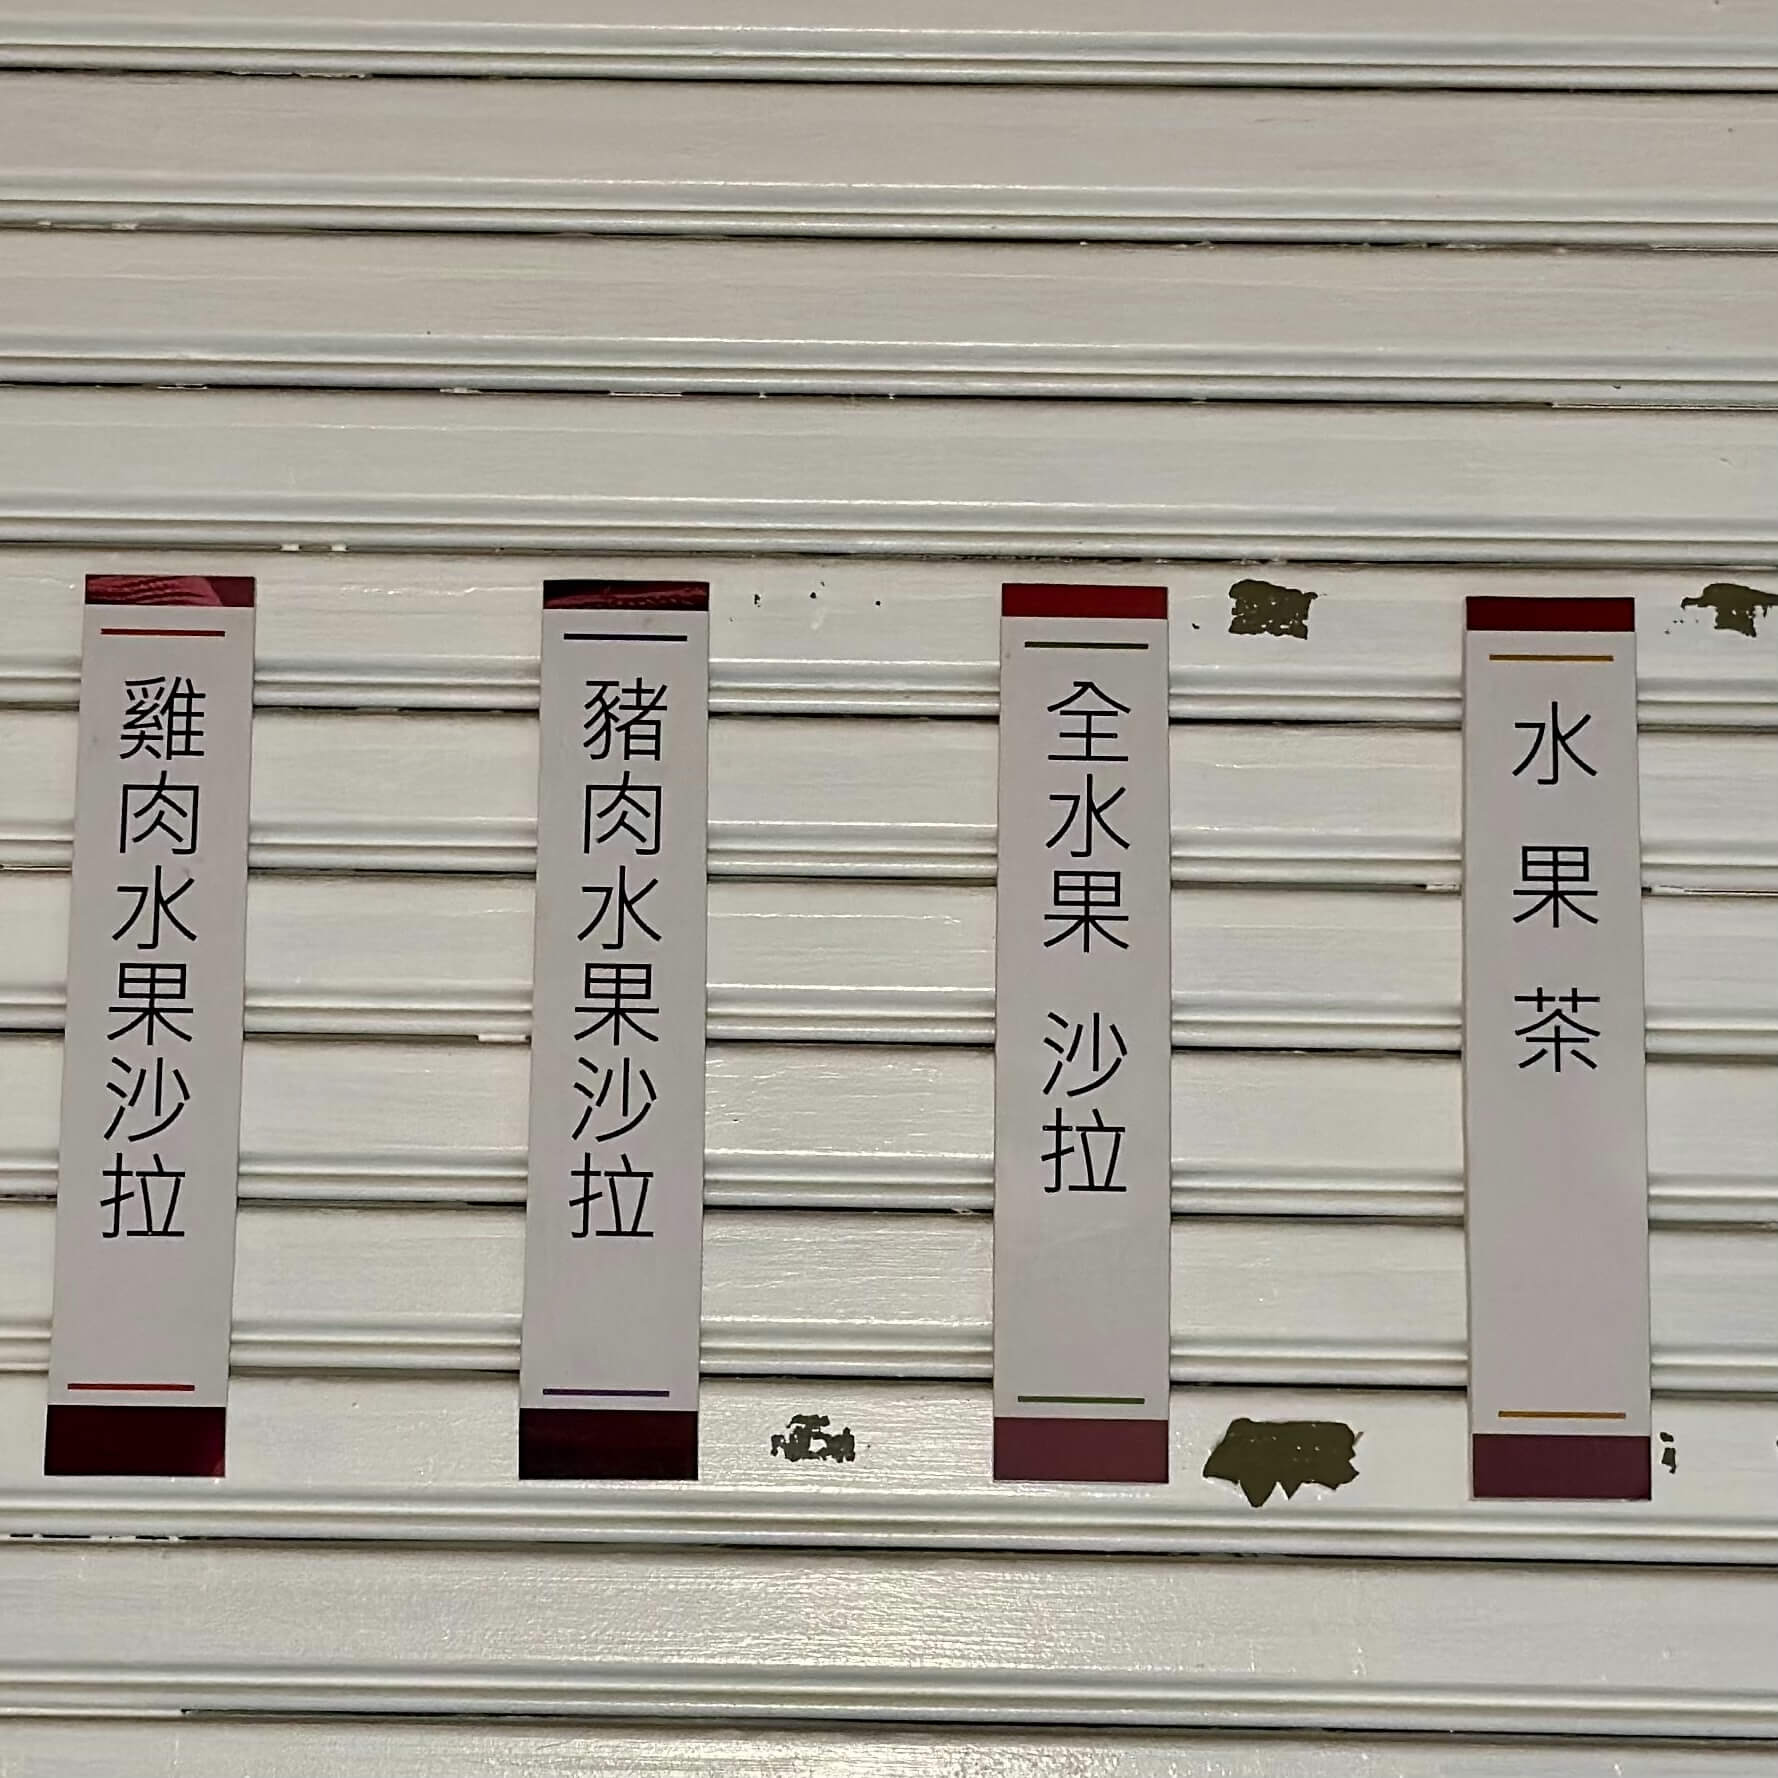 雞肉水果沙拉
豬肉水果沙拉
全水果 沙拉
水果茶